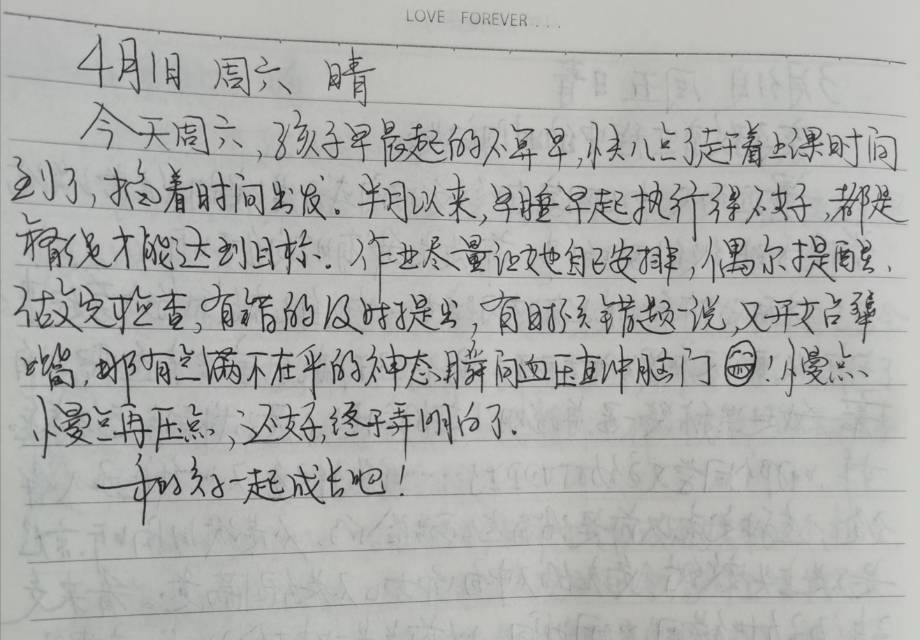 LOVE FOREVER...
4月1日 周六 晴
今天周六,孩子早晨起的不算早,快八点了赶着上课时间
到了,掐着时间出发。半月以来,早睡早起执行得不好,都是
才能达到目标。作业尽量让她自己安排,偶尔提醒,
做完检查,有错的及时提出,有时候错题一说,又开始
嘴,那有点满不在乎的神态,瞬间血压直冲脑门!慢点
慢点再压点,还好,终于弄明白了。
和孩子一起成长吧!